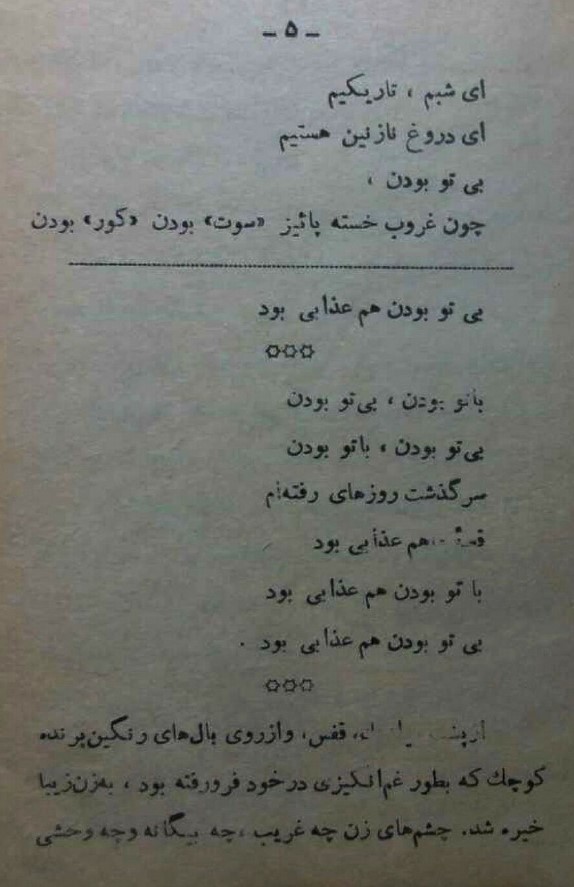 - ۵ -
ای شبم ، تاریکیم
ای دروغ نازنین هستیم
بی تو بودن ،
چون غروب خسته پائیز «سوت» بودن «کور» بودن
بی تو بودن هم عذابی بود
باتو بودن ، بی‌تو بودن
بی‌تو بودن ، باتو بودن
سرگذشت روزهای رفته‌ام
هم عذابی بود
با تو بودن هم عذابی بود
بی تو بودن هم عذابی بود .
ازپشت قفس، وازروی بال‌های رنگین‌پرنده
کوچك که بطور غم‌انگیزی درخود فرورفته بود ، به‌زن‌زیبا
خیره شد. چشم‌های زن چه غریب ،چه بیگانه وچه وحشی